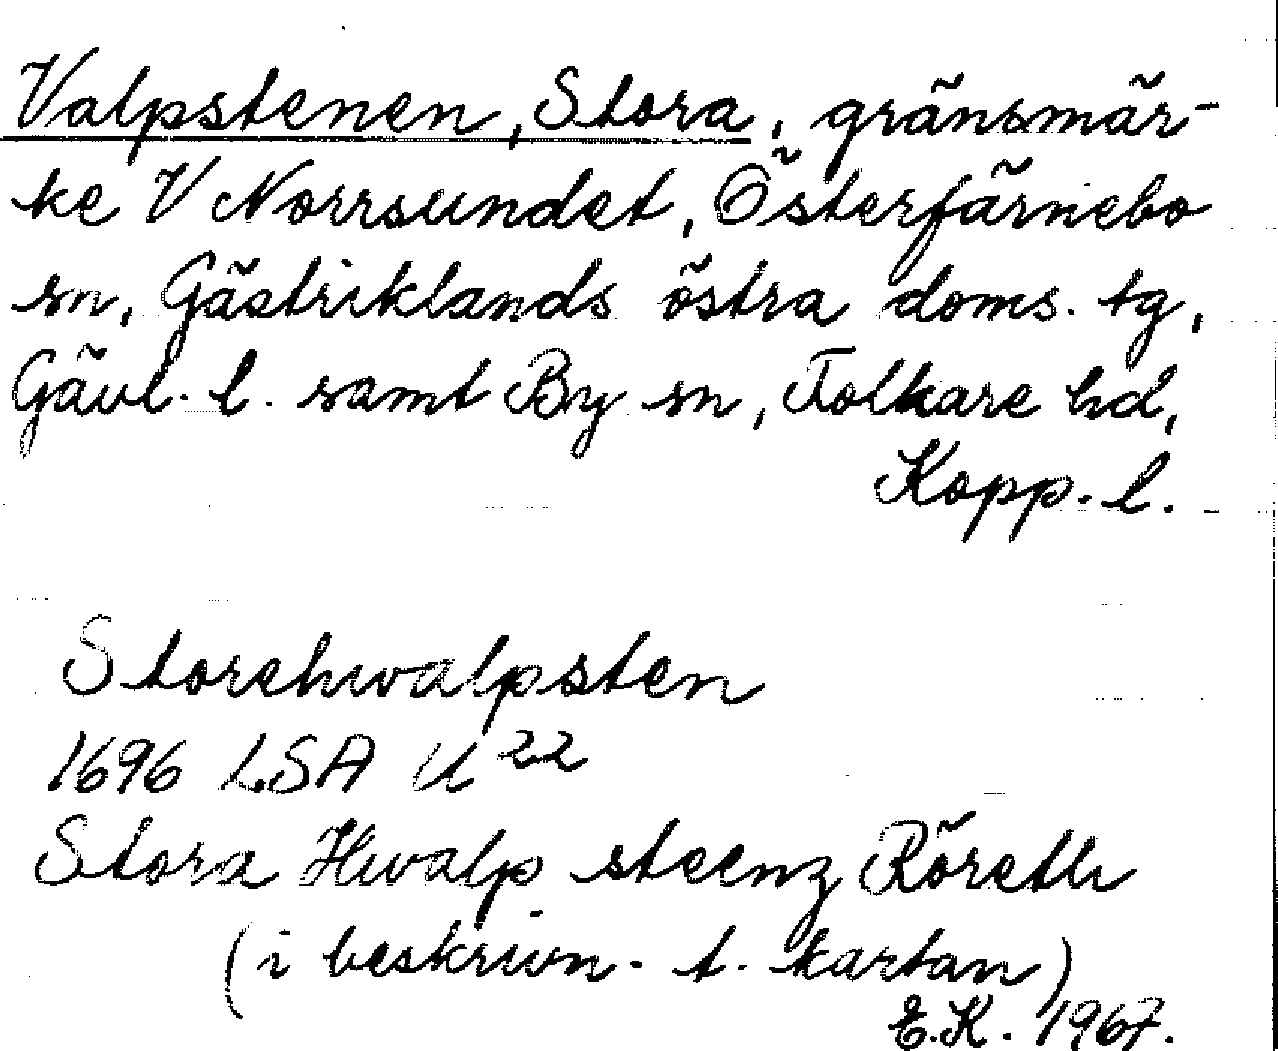 Valpstenen, Stora, gränsmär-
ke V Norrsundet, Österfärnebo
sn, Gästriklands östra doms. tg,
Gävl. l. samt By sn, Folkare hd,
Kopp. l.
Storehwalpsten
1696 LSA U 22
Stora Hwalp steenz Röreth
(i beskrivn. t. kartan)
E.K. 1967.